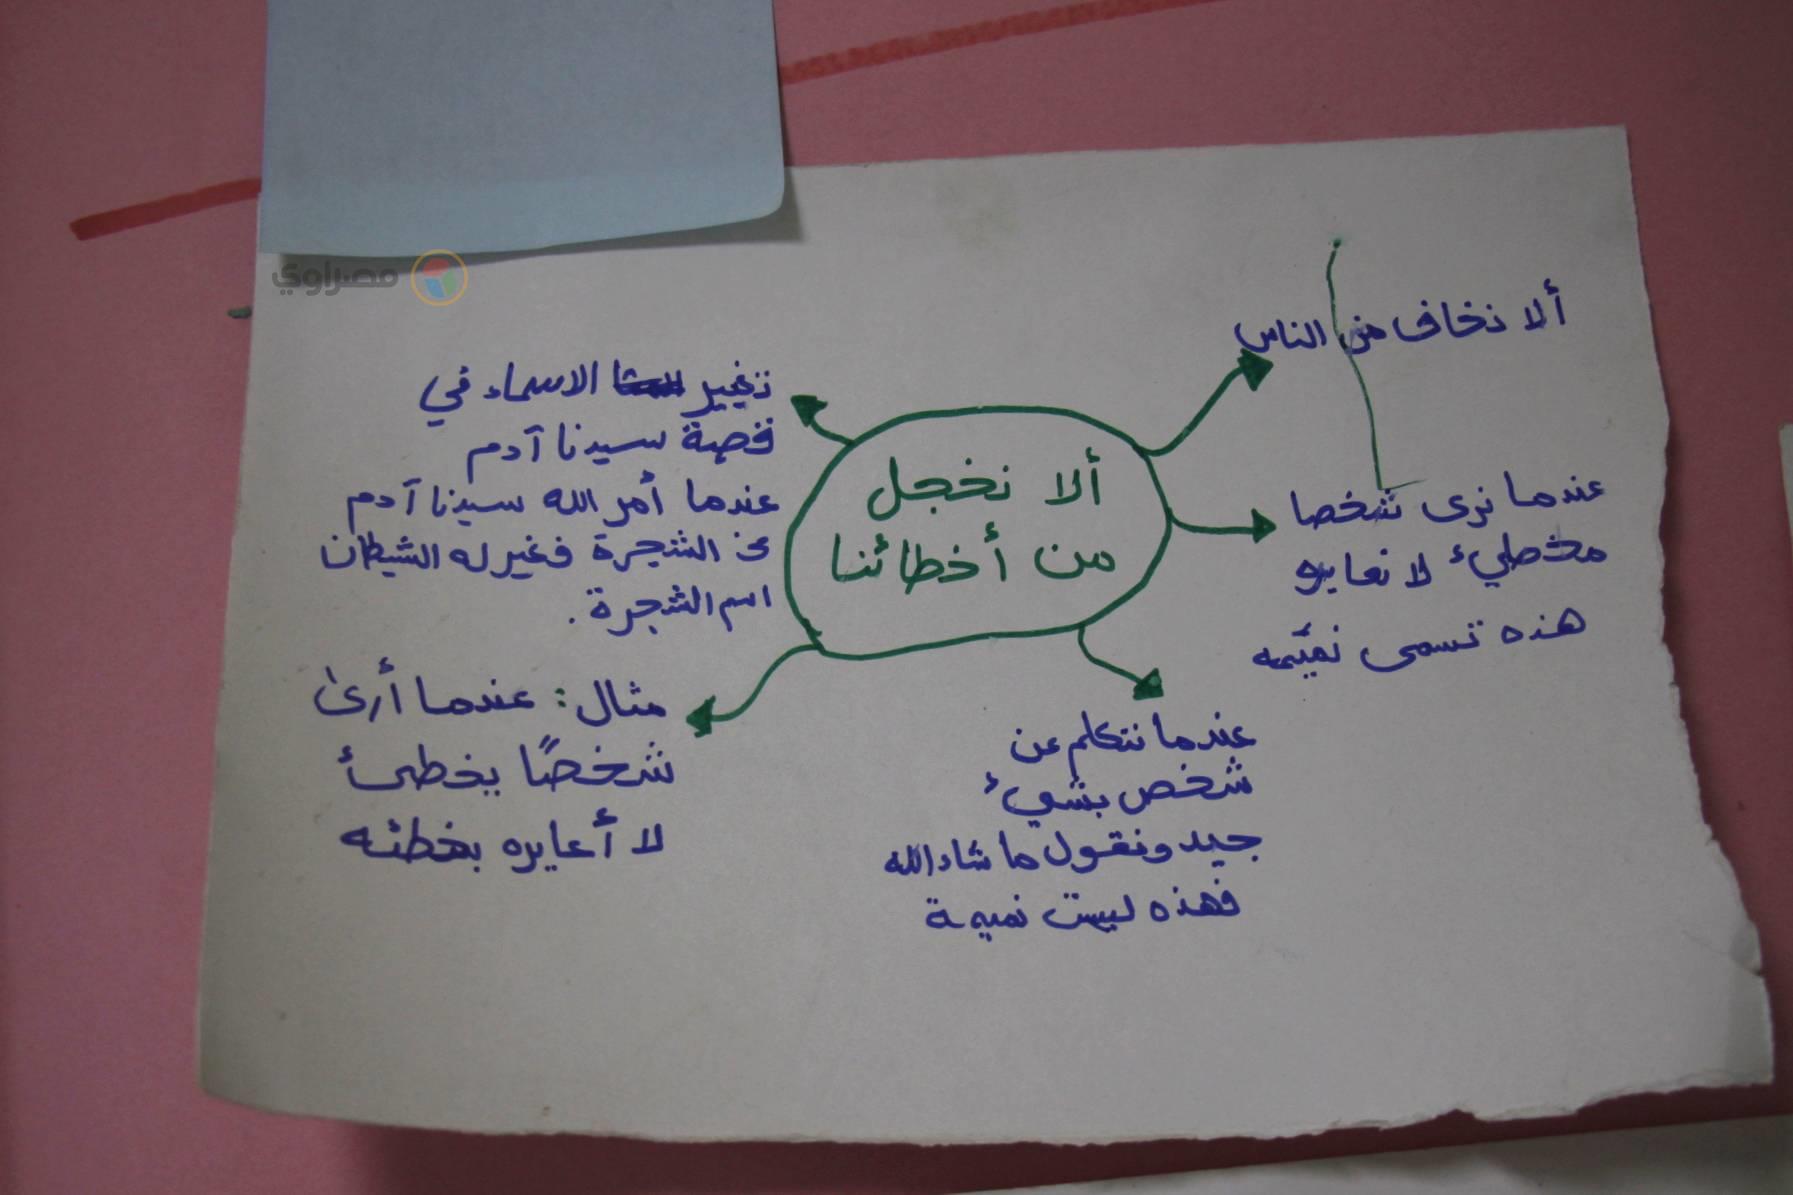 مصراوي
ألا نخجل
من أخطائنا
ألا نخاف من الناس
عندما نرى شخصا
مخطيء لا نعايره
هذه تسمى نميمه
عندما نتكلم عن
شخص بشيء
جيد ونقول ما شاء الله
فهذه ليست نميمة
تغيير الاسماء في
قصة سيدنا آدم
عندما أمر الله سيدنا آدم
عن الشجرة فغير له الشيطان
اسم الشجرة .
مثال : عندما أرى
شخصًا يخطئ
لا أعايره بخطئه